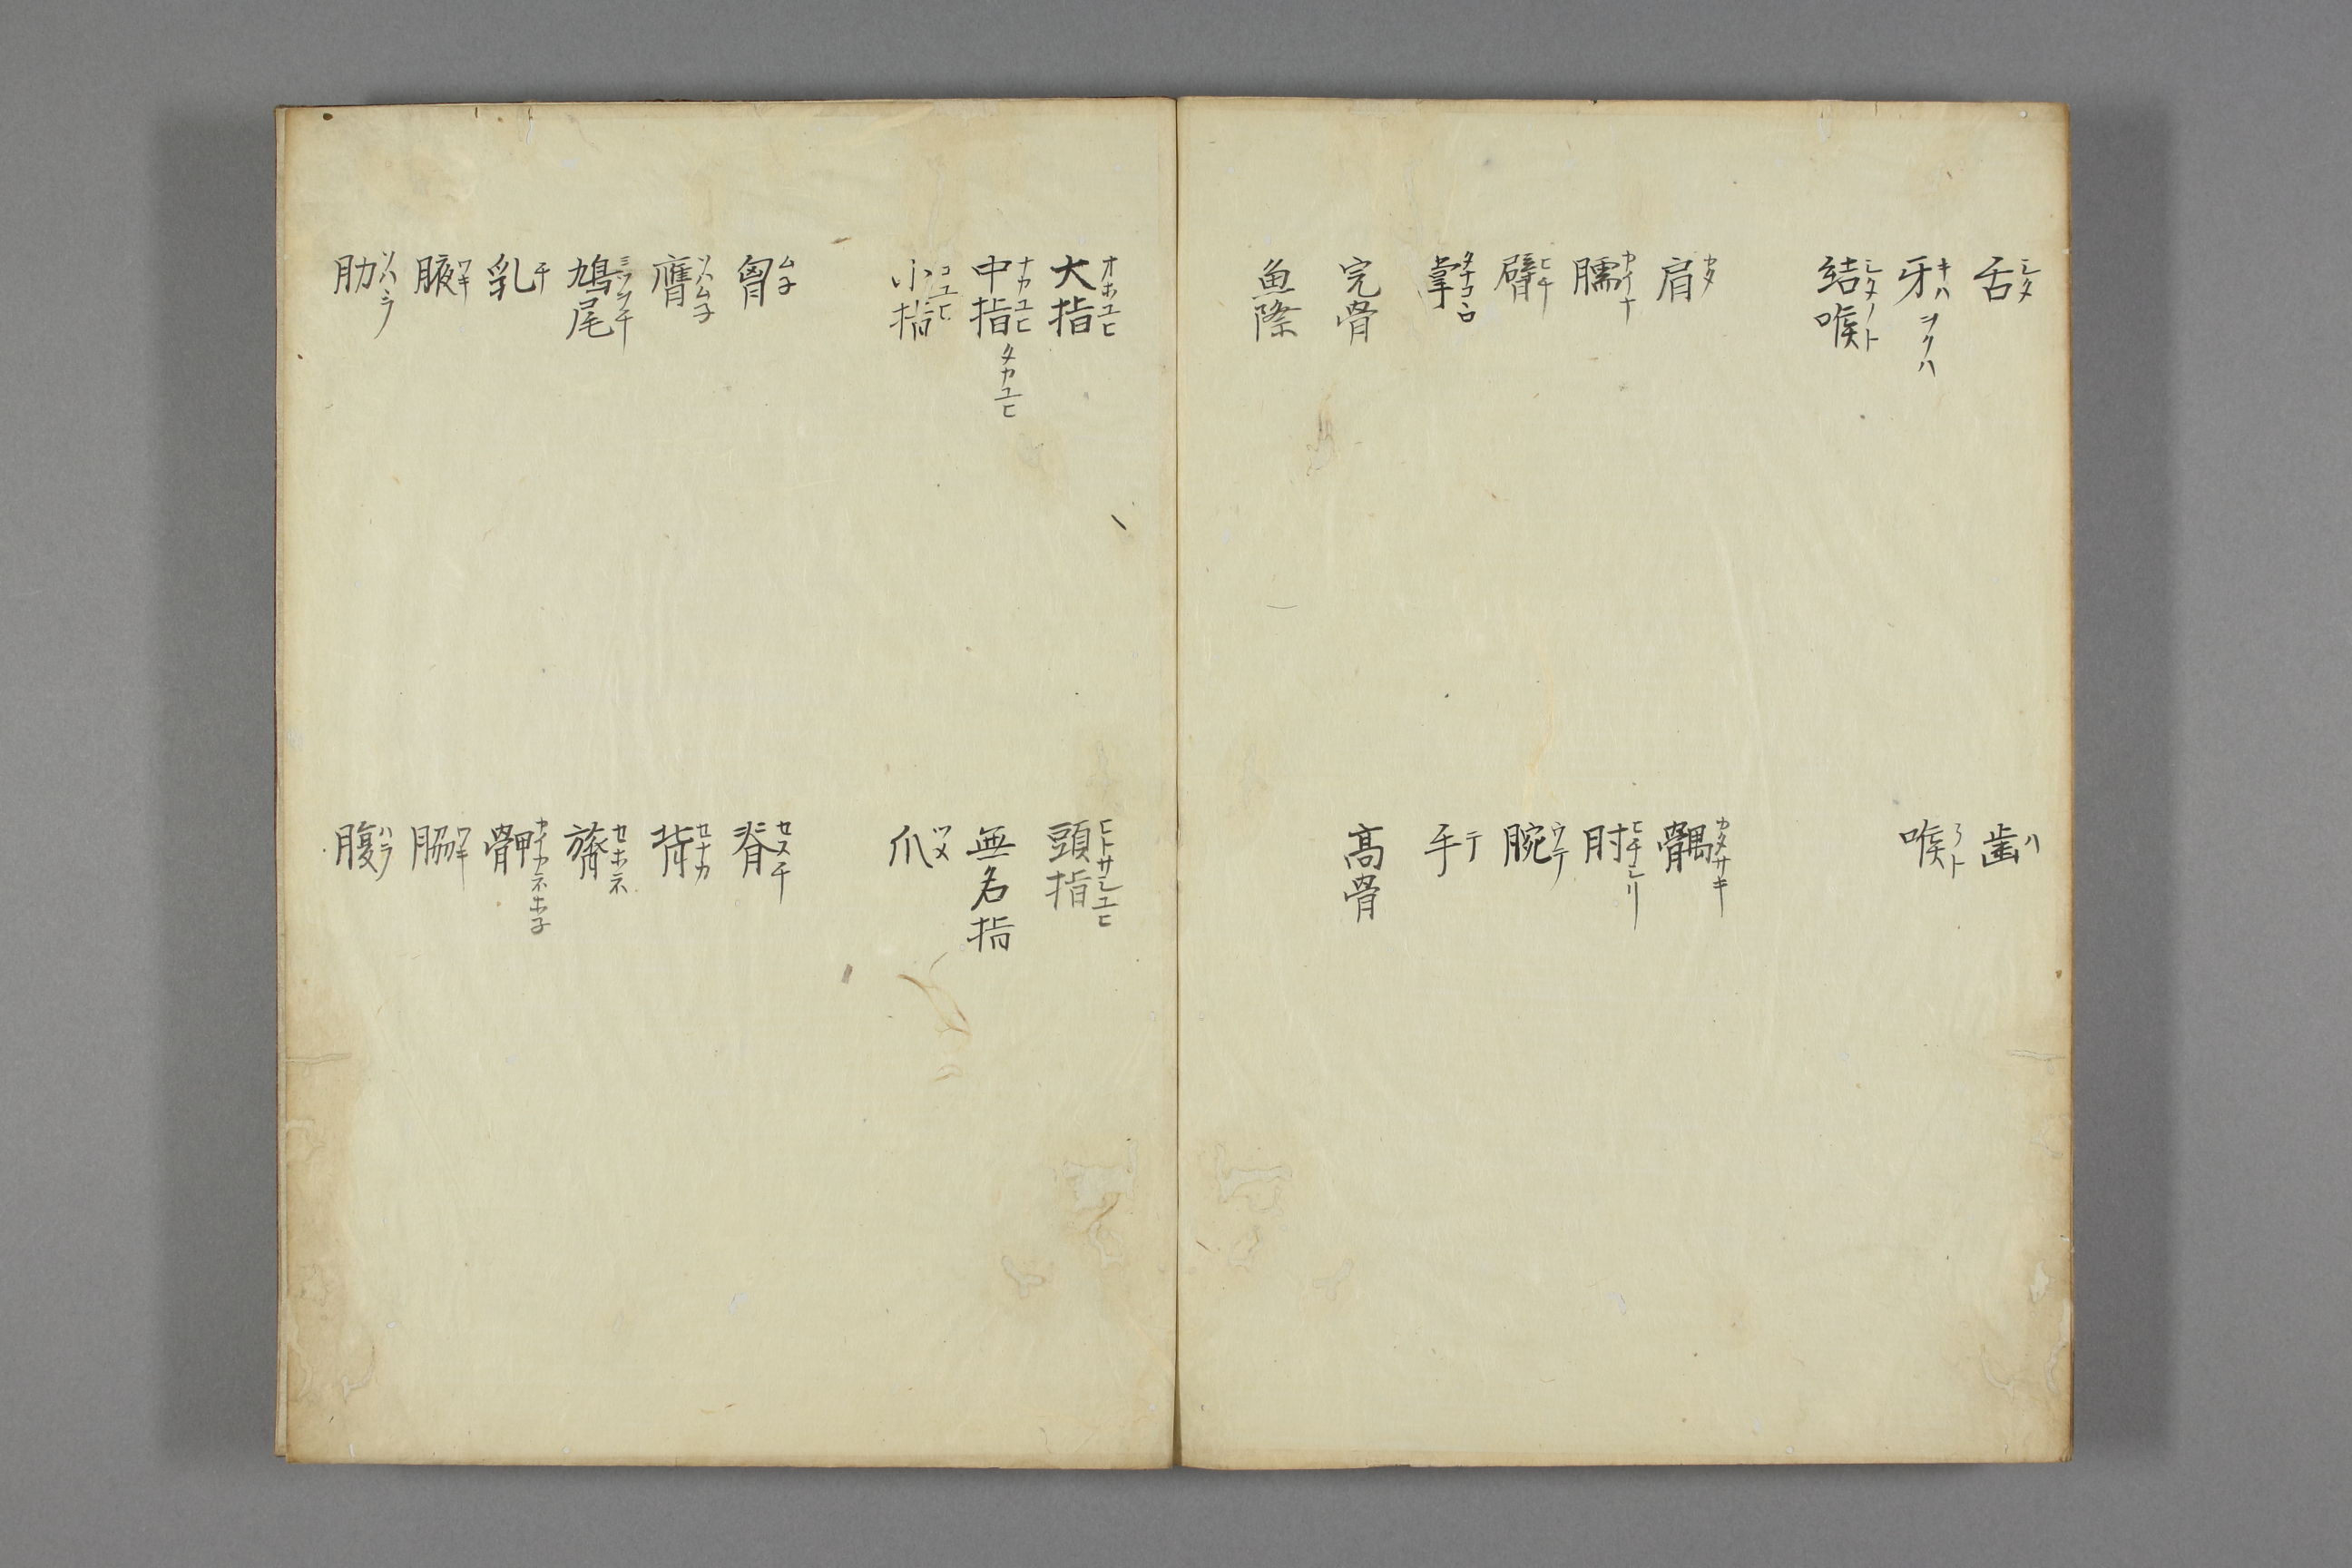 舌 シタ
歯 ハ
牙 キハ ヲクハ
喉 ノト
結喉 シタノト
肩 カタ
髃 カタサキ
臑 カイナ
肘 ヒチシリ
臂 ヒチ
腕 ウテ
掌 タナコヽロ
手 テ
完骨
高骨
魚際
大指 オホユヒ
頭指 ヒトサシユヒ
中指 ナカユヒ タカユヒ
無名指
小指 コユヒ
爪 ツメ
胷 ム子
脊 セスチ
膺 ソハム子
背 セナカ
鳩尾 ミツヲチ
膂 セホネ
乳 チ
骨甲 カイカネホ子
腋 ワキ
脇 ワキ
肋 ソハラ
腹 ハラ